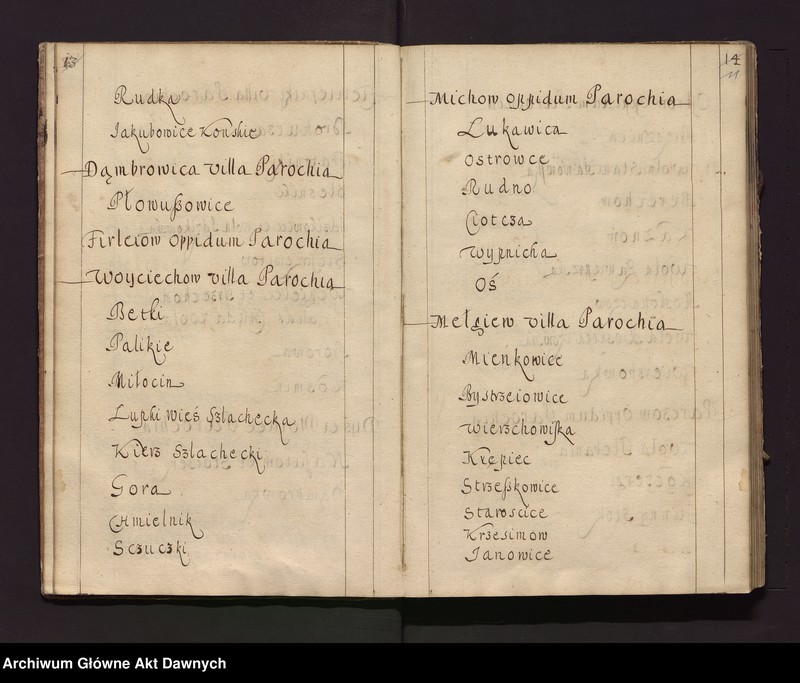 13
Rudka
Jakubowice Konskie
Dąmbrowica villa Parochia
Płowußowice
Firleiow oppidum Parochia
Woyciechow villa Parochia
Bełki
Palikie
Miłocin
Lupki wieś Szlachecka
Kierz Szlachecki
Gora
Chmielnik
Sczuczki
14
11
Michow oppidum Parochia
Lukawica
Ostrowce
Rudno
Ciotcza
Wypnicha
Oś
Mełgiew villa Parochia
Mieńkowice
Bystrzeiowice
Wierzchowiska
Krępiec
Strzeßkowice
Staroscice
Krzesimow
Janowice
Archiwum Główne Akt Dawnych